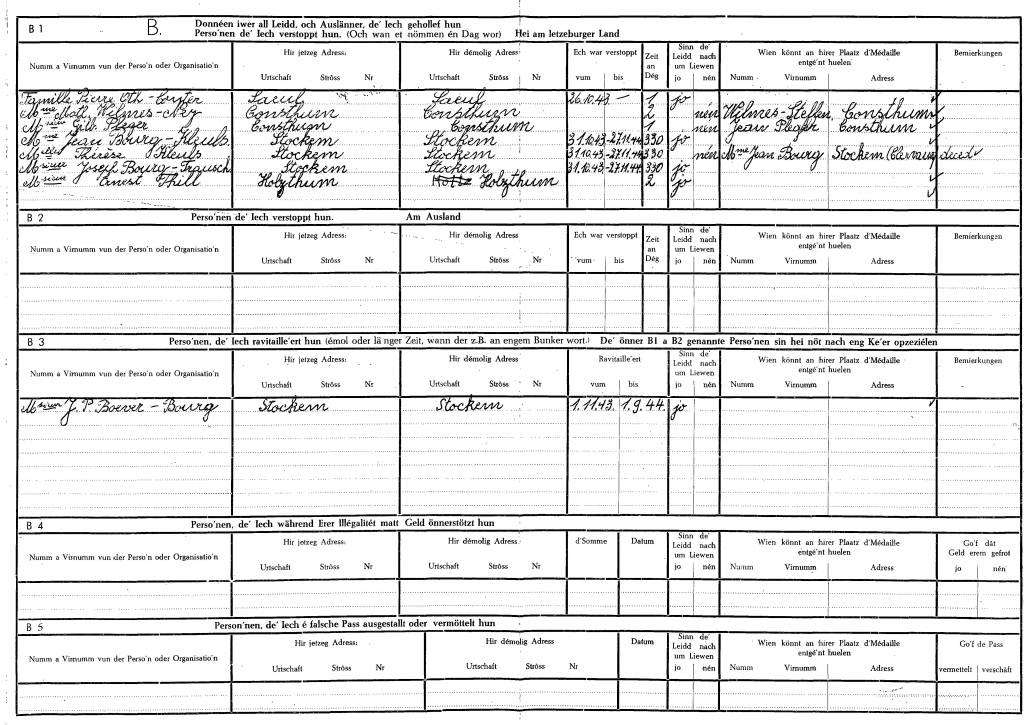 B 1 B. Donnéen iwer all Leidd, och Auslänner, de' Iech gehollef hun
Perso'nen de' Iech verstoppt hun. (Och wan et nömmen én Dag wor) Hei am letzeburger Land
Numm a Virnumm vun der Perso'n oder Organisatio'n Hir jetzeg Adress: Hir démolig Adress Ech war verstoppt Zeit an Dég Sinn de' Leidd nach um Liewen Wien könnt an hirer Plaatz d'Médaille entgé'nt huelen Bemierkungen
Urtschaft Ströss Nr Urtschaft Ströss Nr vum bis jo nén Numm Virnumm Adress
Famille Pierre Oth - Saeul Saeul 26.10.43 — 1 jo ✓
Mme Math. Wilmes - Ney Consthum Consthum 2 nén Wilmes - Steffen, Consthum ✓
Gilb. Pleger Consthum Consthum 1 nén Jean Pleger Consthum ✓
Mme Jean Bourg - Kleuls. Stockem Stockem 31.10.43-27.11.44 330 jo ✓
Melles Thérèse Kleuls Stockem Stockem 31.10.43-27.11.44 330 nén Mme Jean Bourg Stockem ✓
Josef Bourg - Stockem Stockem 31.10.43-27.11.44 330 jo ✓
Ernest Thill Holzthum Holzthum 2 jo ✓
B 2 Perso'nen de' Iech verstoppt hun. Am Ausland
Numm a Virnumm vun der Perso'n oder Organisatio'n Hir jetzeg Adress: Hir démolig Adress Ech war verstoppt Zeit an Dég Sinn de' Leidd nach um Liewen Wien könnt an hirer Plaatz d'Médaille entgé'nt huelen Bemierkungen
Urtschaft Ströss Nr Urtschaft Ströss Nr vum bis jo nén Numm Virnumm Adress
B 3 Perso'nen, de' Iech ravitaille'ert hun (émol oder länger Zeit, wann der z.B. an engem Bunker wort.) De' önner B1 a B2 genannte Perso'nen sin hei nöt nach eng Ke'er opzeziélen
Numm a Virnumm vun der Perso'n oder Organisatio'n Hir jetzeg Adress: Hir démolig Adress Ravitaille'ert Sinn de' Leidd nach um Liewen Wien könnt an hirer Plaatz d'Médaille entgé'nt huelen Bemierkungen
Urtschaft Ströss Nr Urtschaft Ströss Nr vum bis jo nén Numm Virnumm Adress
J. P. Boever - Bourg Stockem Stockem 1.11.43. 1.9.44. jo ✓
B 4 Perso'nen, de' Iech während Erer Illégalitét matt Geld önnerstötzt hun
Numm a Virnumm vun der Perso'n oder Organisatio'n Hir jetzeg Adress: Hir démolig Adress: d'Somme Datum Sinn de' Leidd nach um Liewen Wien könnt an hirer Plaatz d'Médaille entgé'nt huelen Go'f dát Geld erem gefrot
Urtschaft Ströss Nr Urtschaft Ströss Nr jo nén Numm Virnumm Adress jo nén
B 5 Person'nen, de' Iech é falsche Pass ausgestallt oder vermöttelt hun
Numm a Virnumm vun der Perso'n oder Organisatio'n Hir jetzeg Adress: Hir démolig Adress: Datum Sinn de' Leidd nach um Liewen Wien könnt an hirer Plaatz d'Médaille entgé'nt huelen Go'f de Pass
Urtschaft Ströss Nr Urtschaft Ströss Nr jo nén Numm Virnumm Adress vermettelt verschäft